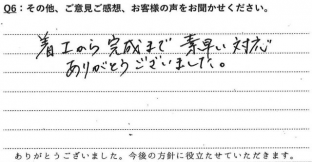 Q6：その他、ご意見ご感想、お客様の声をお聞かせください。
着工から完成まで 素早い対応
ありがとうございました。
ありがとうございました。今後の方針に役立たせていただきます。